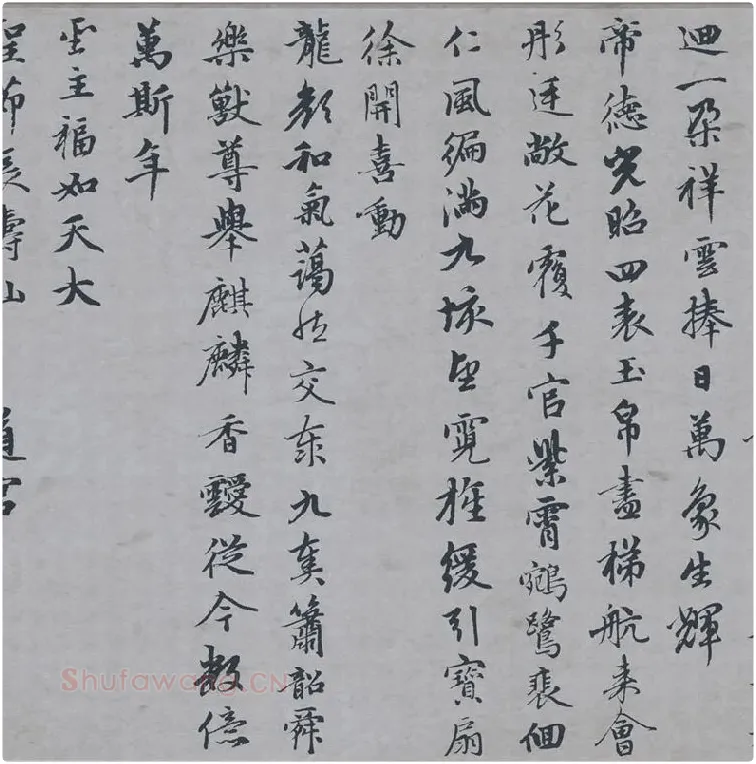 迴一朶祥雲捧日萬象生輝
帝德光昭四表玉帛盡梯航来會
彤廷敞花覆千官紫霄鵷鷺裴佪
仁風徧満九垓望霓旌緩引寳扇
徐開喜動
龍顔和氣藹然交泰九奏簫韶舜
樂獸尊舉麒麟香靉從今數億
萬斯年
聖主福如天大
Shufawang.CN